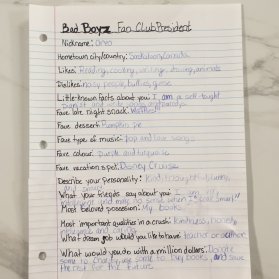 Bad Boyz Fan Club President
Nickname:
Hometown city/country: Saskatoon/Canada
Likes: Reading, cooking, writing, music, animals
Dislikes: noisy people, bullies,
Little-known facts about you: I am a self-taught
pianist and
Fave late night snack: Waffles!!
Fave dessert: Pumpkin pie
Fave type of music: pop and love songs
Fave colour: Purple and turquoise
Fave vacation spot: Disney Cruise
Describe your personality: Kind, thoughtful, bubbly,
What your friends say about you: I am very
Most beloved possession: My books
Most important qualities in a crush: kindness, honesty,
What dream job would you like to have: teacher or author
What would you do with a million dollars: Donate
some to charity, some to buy books, and save
the rest for the future.